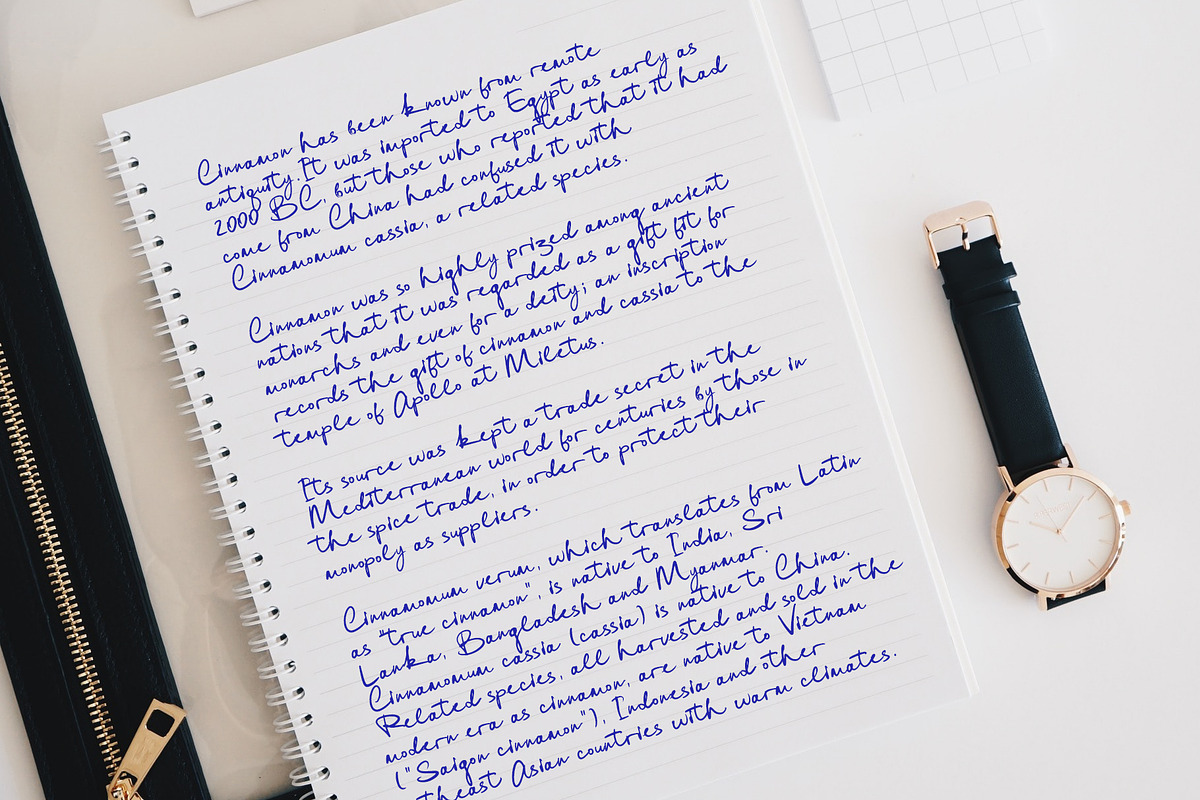 Cinnamon has been known from remote
antiquity. It was imported to Egypt as early as
2000 BC, but those who reported that it had
come from China had confused it with
Cinnamomum cassia, a related species.
Cinnamon was so highly prized among ancient
nations that it was regarded as a gift fit for
monarchs and even for a deity; an inscription
records the gift of cinnamon and cassia to the
temple of Apollo at Miletus.
Its source was kept a trade secret in the
Mediterranean world for centuries by those in
the spice trade, in order to protect their
monopoly as suppliers.
Cinnamomum verum, which translates from Latin
as "true cinnamon", is native to India, Sri
Lanka, Bangladesh and Myanmar.
Cinnamomum cassia (cassia) is native to China.
Related species, all harvested and sold in the
modern era as cinnamon, are native to Vietnam
("Saigon cinnamon"), Indonesia and other
theast Asian countries with warm climates.